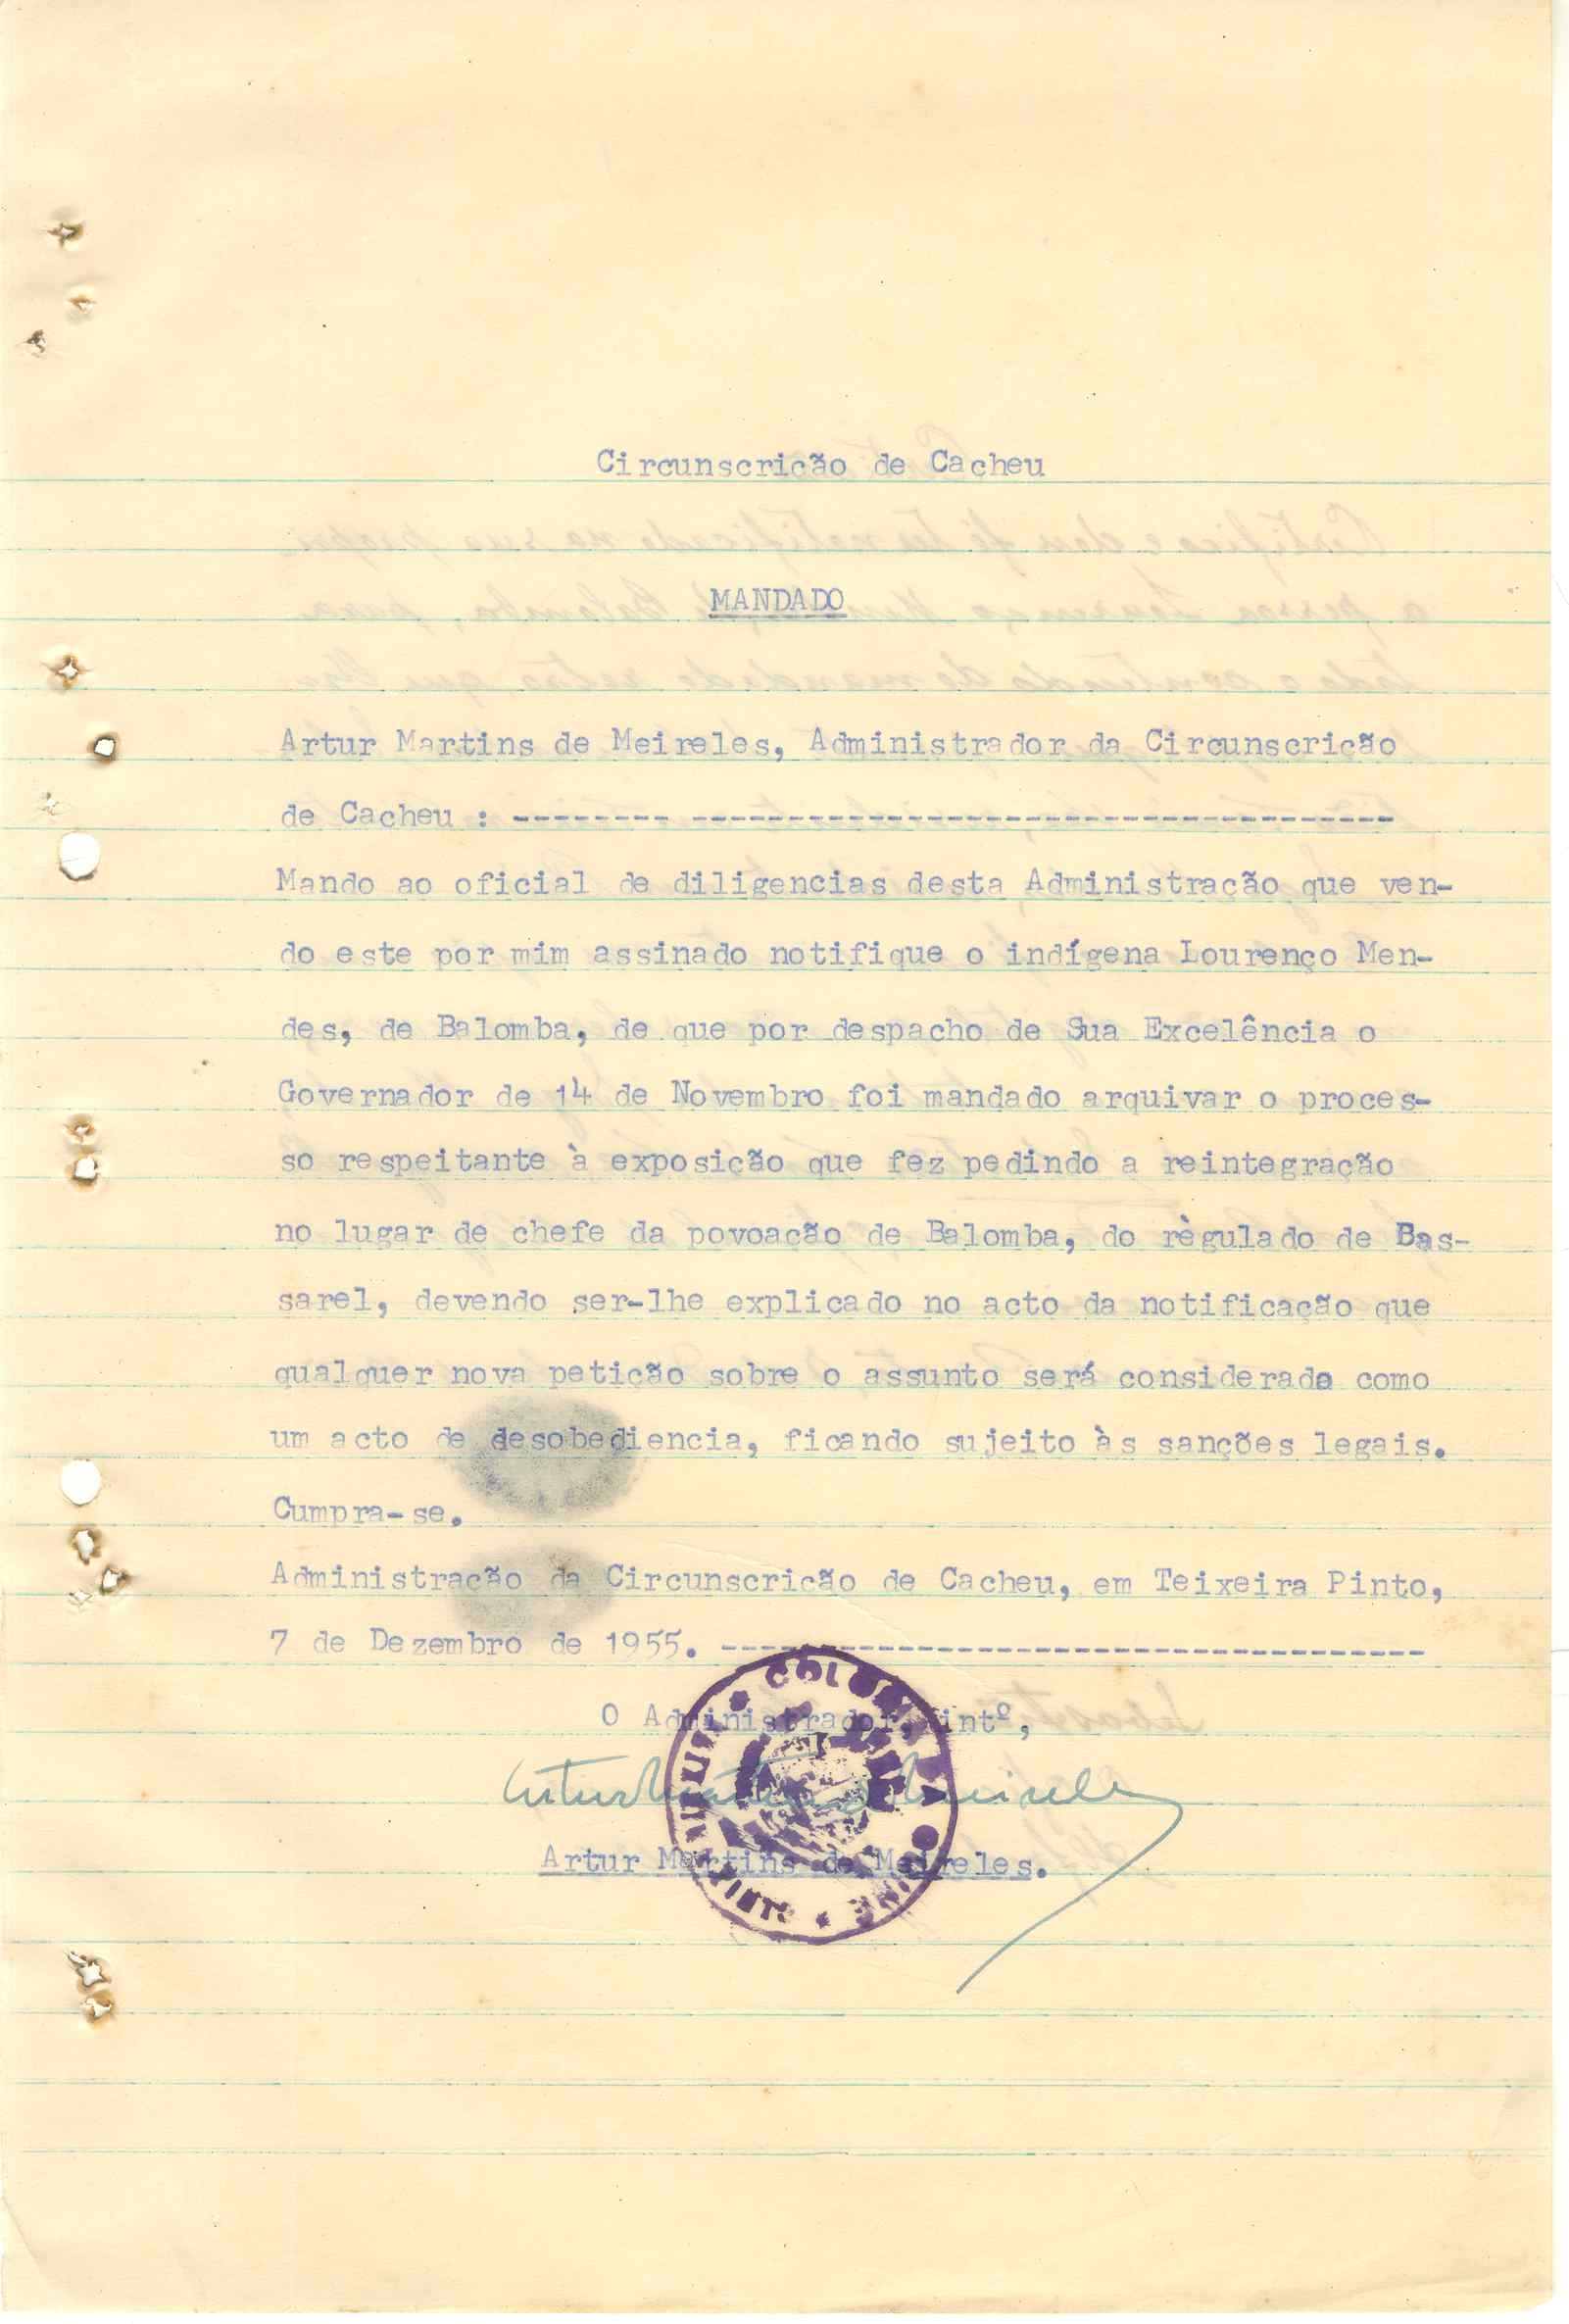 Circunscrição de Cacheu
MANDADO
Artur Martins de Meireles, Administrador da Circunscrição
de Cacheu : --------- ----------------------------------------
Mando ao oficial de diligencias desta Administração que ven-
do este por mim assinado notifique o indígena Lourenço Men-
des, de Balomba, de que por despacho de Sua Excelência o
Governador de 14 de Novembro foi mandado arquivar o proces-
so respeitante à exposição que fez pedindo a reintegração
no lugar de chefe da povoação de Balomba, do règulado de Bas-
sarel, devendo ser-lhe explicado no acto da notificação que
qualquer nova petição sobre o assunto será considerada como
um acto de desobediencia, ficando sujeito às sanções legais.
Cumpra-se.
Administração da Circunscrição de Cacheu, em Teixeira Pinto,
7 de Dezembro de 1955. ----------------------------------------
O Administrador, intº,
Artur Martins de Meireles
Artur Martins de Meireles.
COLONIA DA GUINE